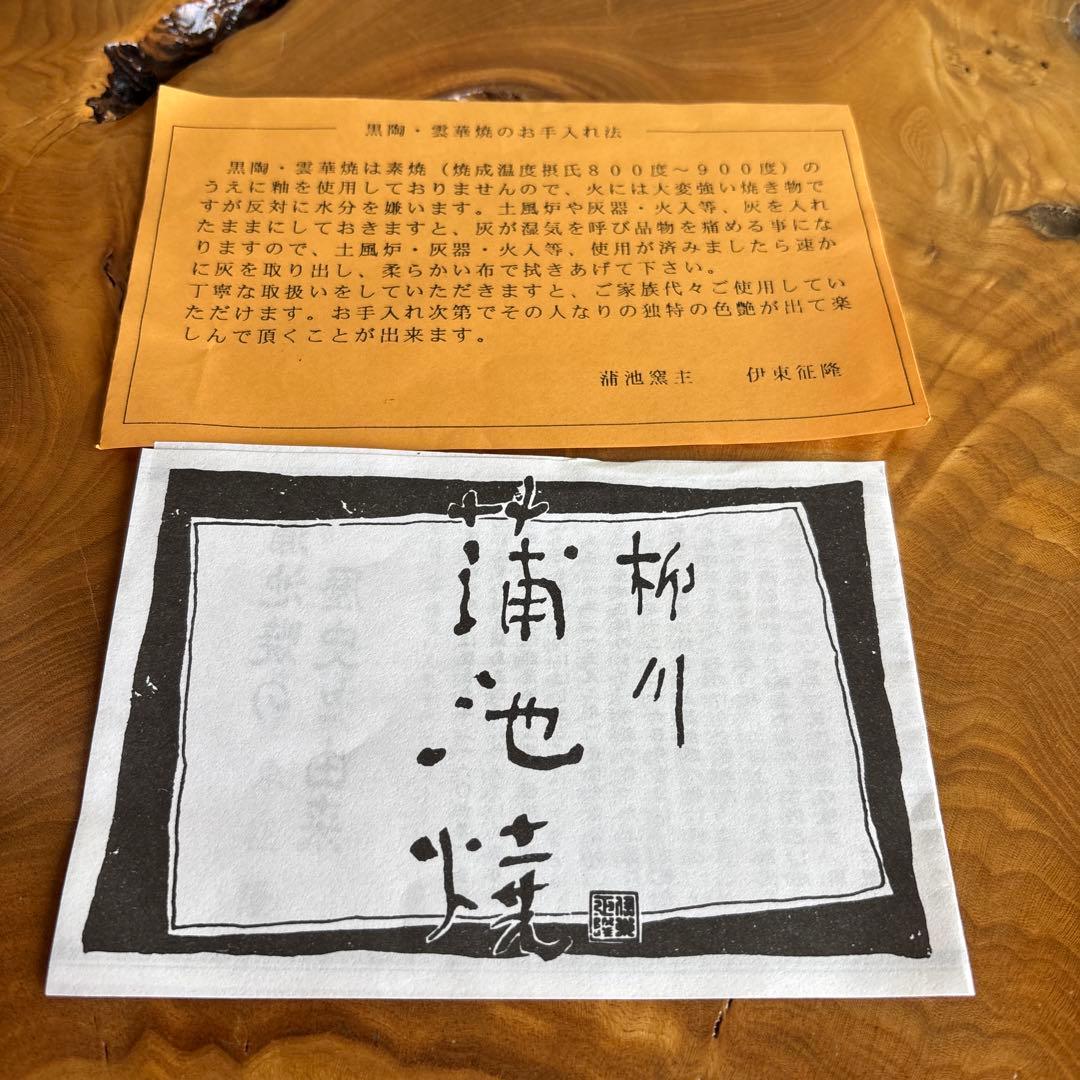 黒陶・雲華焼のお手入れ法
黒陶・雲華焼は素焼（焼成温度摂氏８００度～９００度）の
うえに釉を使用しておりませんので、火には大変強い焼き物で
すが反対に水分を嫌います。土風炉や灰器・火入等、灰を入れ
たままにしておきますと、灰が湿気を呼び品物を痛める事にな
りますので、土風炉・灰器・火入等、使用が済みましたら速か
に灰を取り出し、柔らかい布で拭きあげて下さい。
丁寧な取扱いをしていただきますと、ご家族代々ご使用してい
ただけます。お手入れ次第でその人なりの独特の色艶が出て楽
しんで頂くことが出来ます。
蒲池窯主　伊東征隆
柳川
蒲池焼